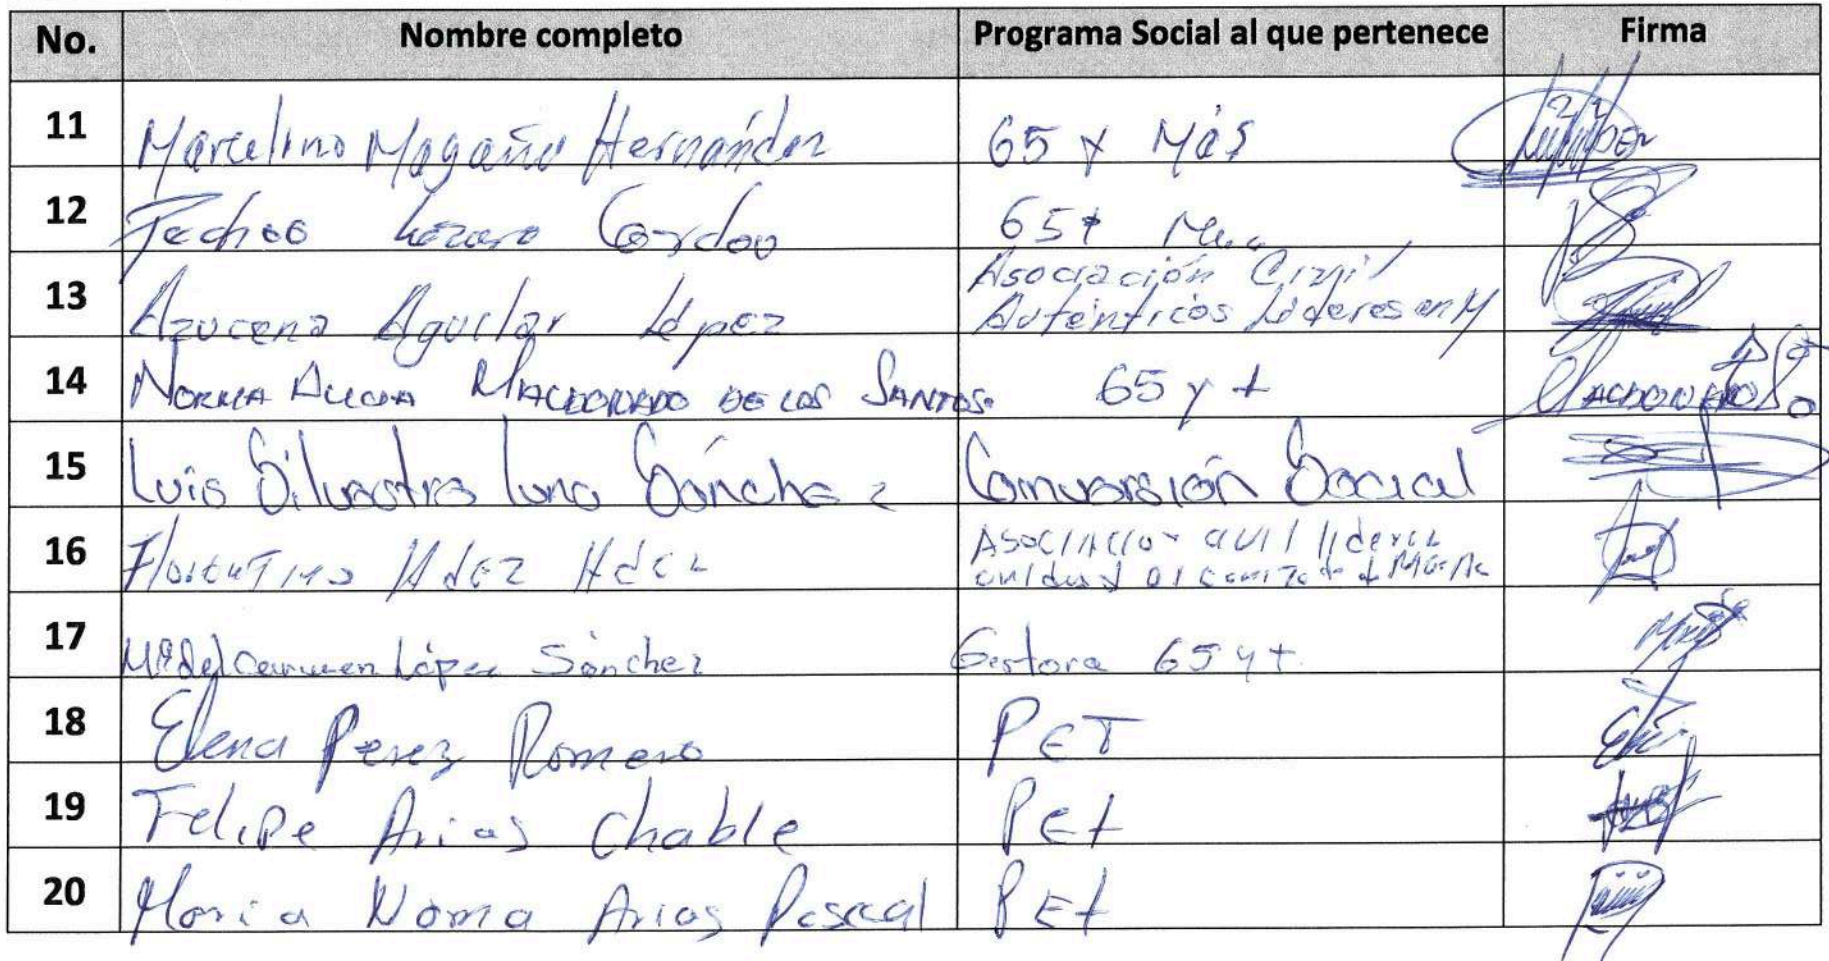 No. Nombre completo Programa Social al que pertenece Firma
11 Marcelino Magaña Hernández 65 y Más
12 Lázaro Cordov 65+
13 Azucena Aguilar López Asociación Civil
Auténticos Líderes en M
14 NORMA ALICIA MALDONADO DE LOS SANTOS. 65 y + MALDONADO
15 Luis Silvestre Luna Sánchez Conversión Social
16 Florentino Hdez Hdez Asociación civil lideres
unidos
17 Mª del Carmen López Sánchez Gestora 65 y +
18 Elena Perez Romero PET
19 Felipe Arias Chable PEt
20 Maria Norma Arias Pascal PEt